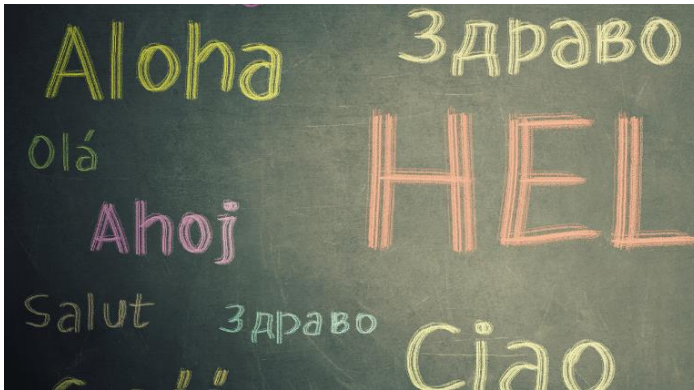 Aloha
Здраво
Olá
HEL
Ahoj
Salut
Здраво
Ciao